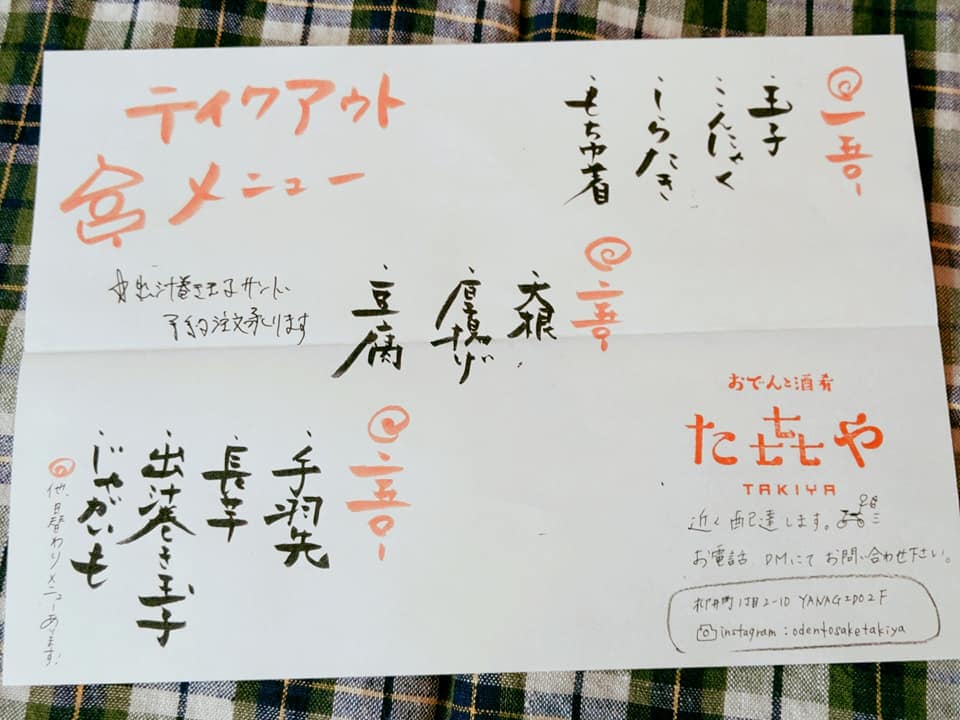 ティクアウト
メニュー
@一五〇-
・玉子
・こんにゃく
・しらたき
・もち巾着
・大根
・厚揚げ
・豆腐
・手羽先
・長芋
・出汁巻き玉子
・じゃがいも
@他、日替わりメニューあります!
☆出汁巻き玉子サンド、
予約注文承ります
おでんと酒肴
た㐂や
TAKIYA
近く配達します。
お電話、DMにてお問い合わせ下さい。
柳井町1丁目2-10 YANAGIDO2F
instagram : odentosaketakiya